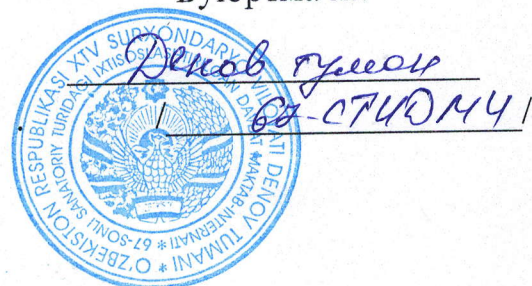 Денов туман
67-СТИДМИ
O'ZBEKISTON RESPUBLIKASI XTV SURXONDARYO VILOYATI DENOV TUMANI *
67-SONLI SANATORIY TURIDAGI IXTISOSLASHTIRILGAN DAVLAT MAKTAB-INTERNATI *